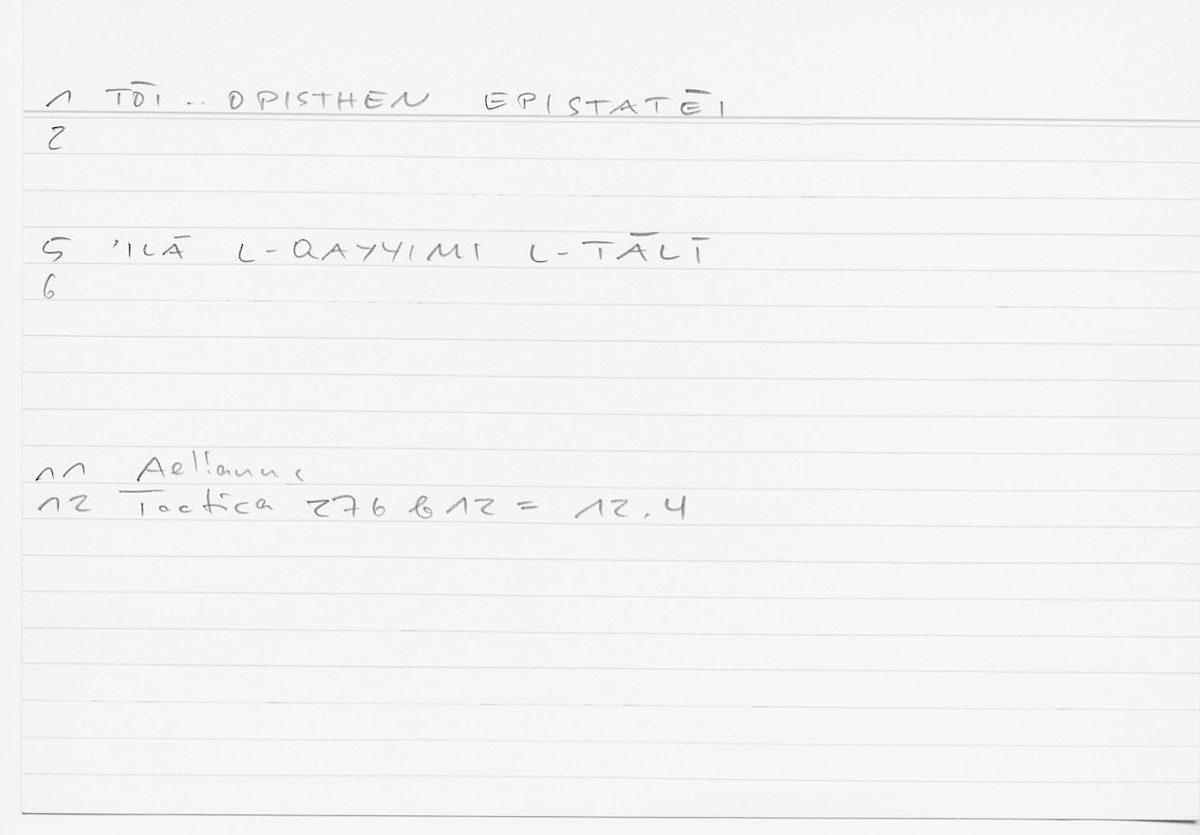 1 TŌI .. OPISTHEN EPISTATĒI
2
5 'ILĀ L-QAYYIMI L-TĀLĪ
6
11 Aelianus
12 Tactica 276 b 12 = 12.4